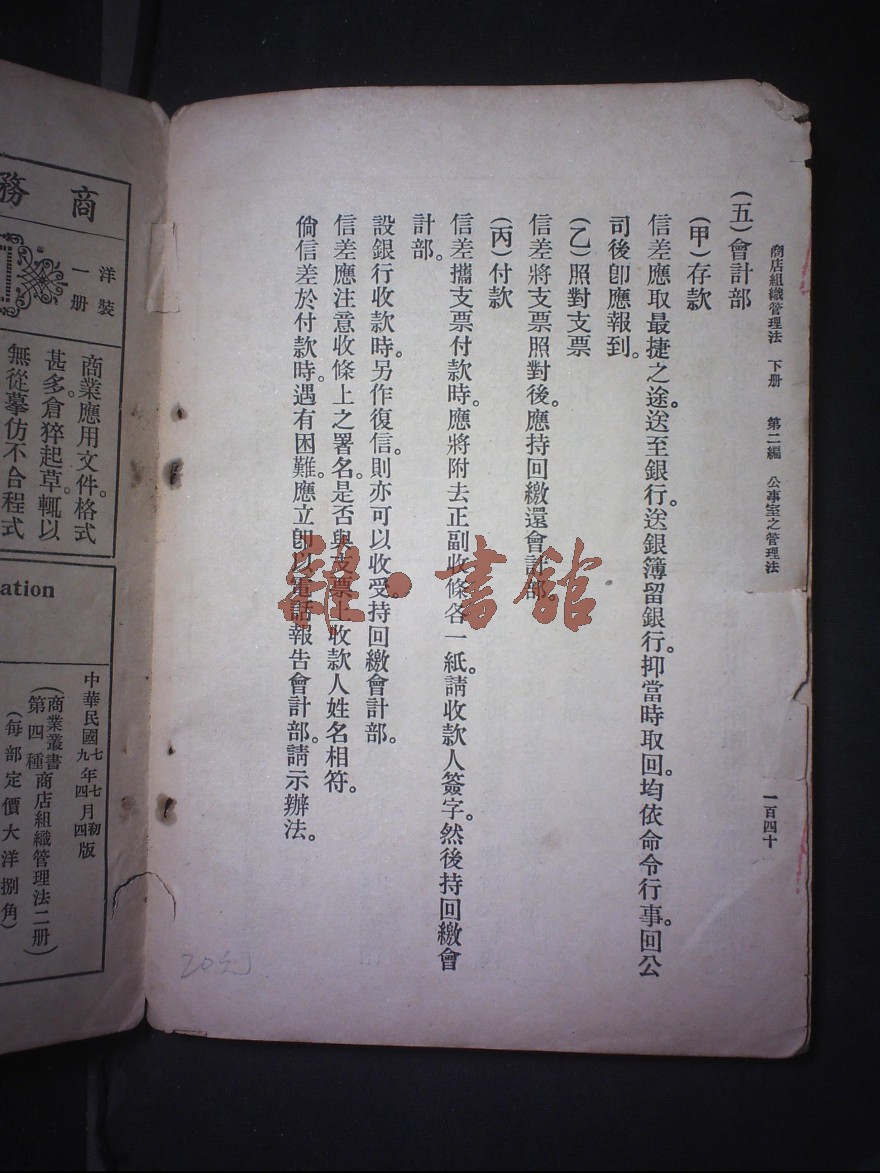 商店組織管理法　下册　第二編　公事室之管理法　一百四十
(五)會計部
(甲)存款
信差應取最捷之途。送至銀行。送銀簿留銀行。抑當時取回。均依命令行事。回公
司後卽應報到。
(乙)照對支票
信差將支票照對後。應持回繳還會計部。
(丙)付款
信差攜支票付款時。應將附去正副收條各一紙。請收款人簽字。然後持回繳會
計部。
設銀行收款時。另作復信。則亦可以收受。持回繳會計部。
信差應注意收條上之署名。是否與支票上收款人姓名相符。
倘信差於付款時。遇有困難。應立卽以電話報告會計部。請示辦法。
商務
洋裝
一册
商業應用文件格式。
甚多。倉猝起草。輒以
無從摹仿不合程式
ation
中華民國七年七月初版
九年四月四版
(商業叢書
第四種商店組織管理法二册)
(每部定價大洋捌角)
書館